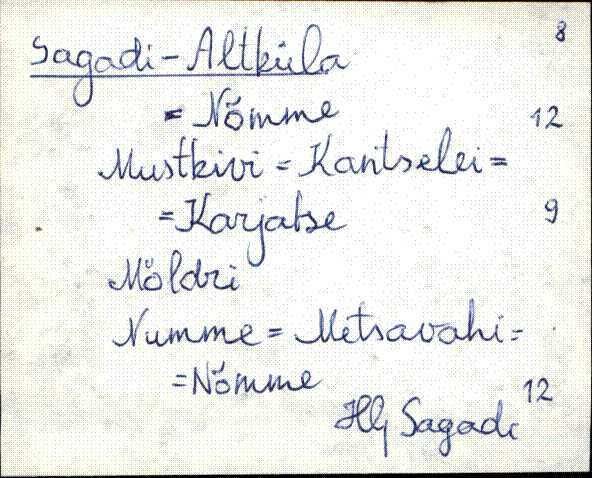 Sagadi-Altküla 8
= Nõmme 12
Mustkivi = Kantselei =
= Karjatse 9
Möldri
Numme = Metsavahi =
= Nõmme 12
Hlj Sagadi